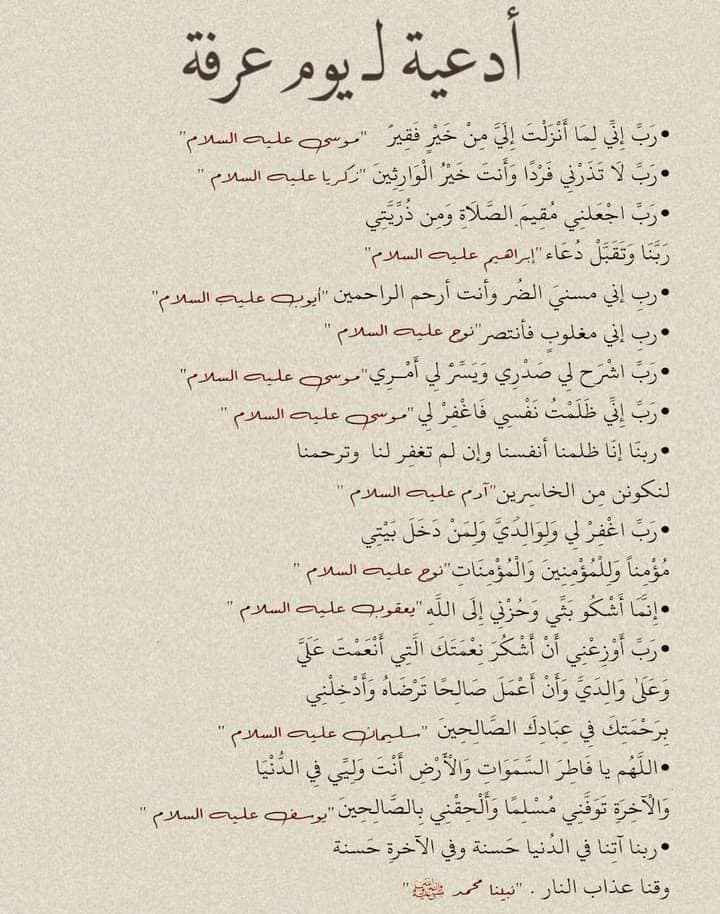 أدعية لـ يوم عرفة
•رَبِّ إِنِّي لِمَا أَنْزَلْتَ إِلَيَّ مِنْ خَيْرٍ فَقِيرٌ "موسى عليه السلام"
•رَبِّ لَا تَذَرْنِي فَرْدًا وَأَنتَ خَيْرُ الْوَارِثِينَ "زكريا عليه السلام "
•رَبِّ اجْعَلنِي مُقِيمَ الصَّلَاةِ وَمِن ذُرِّيَّتِي
رَبَّنَا وَتَقَبَّلْ دُعَاء "إبراهيم عليه السلام"
•ربِ إني مسنيَ الضُر وأنت أرحم الراحمين "أيوب عليه السلام"
•ربِ إني مغلوبٍ فأنتصر"نوح عليه السلام "
•رَبِّ اشْرَح لِي صَدْرِي وَيَسِّرْ لِي أَمْـرِي"موسى عليه السلام"
•رَبِّ إِنِّي ظَلَمْتُ نَفْسِي فَاغْفِرْ لِي "موسى عليه السلام "
•ربنَا إنَا ظلمنا أنفسنا وإن لم تغفِر لنا وترحمنا
لنكونن مِن الخاسِرين"آدم عليه السلام "
•رَبِّ اغْفِرْ لِي وَلِوَالِدَيَّ وَلِمَنْ دَخَلَ بَيْتِي
مُؤْمِناً وَلِلْمُؤْمِنِينَ وَالْمُؤْمِنَاتِ"نوح عليه السلام "
•إِنَّمَا أَشْكُو بَثِّي وَحُزْنِي إِلَى اللَّهِ "يعقوب عليه السلام "
•رَبِّ أَوْزِعْنِي أَنْ أَشْكُرَ نِعْمَتَكَ الَّتِي أَنْعَمْتَ عَلَيَّ
وَعَلَىٰ وَالِدَيَّ وَأَنْ أَعْمَلَ صَالِحًا تَرْضَاهُ وَأَدْخِلْنِي
بِرَحْمَتِكَ فِي عِبَادِكَ الصَّالِحِينَ "سليمان عليه السلام "
•اللَّهُم يا فَاطِرَ السَّمَوَاتِ وَالْأَرْضِ أَنْتَ وَلِيِّي فِي الدُّنْيَا
وَالْآخِرَةِ تَوَفَّنِي مُسْلِمًا وَأَلْحِقْنِي بِالصَّالِحِينَ "يوسف عليه السلام "
•ربنا آتِنا في الدُنيا حَسنة وفي الآخرةِ حَسنة
وقنا عذاب النار . "نبينا محمد ﷺ "